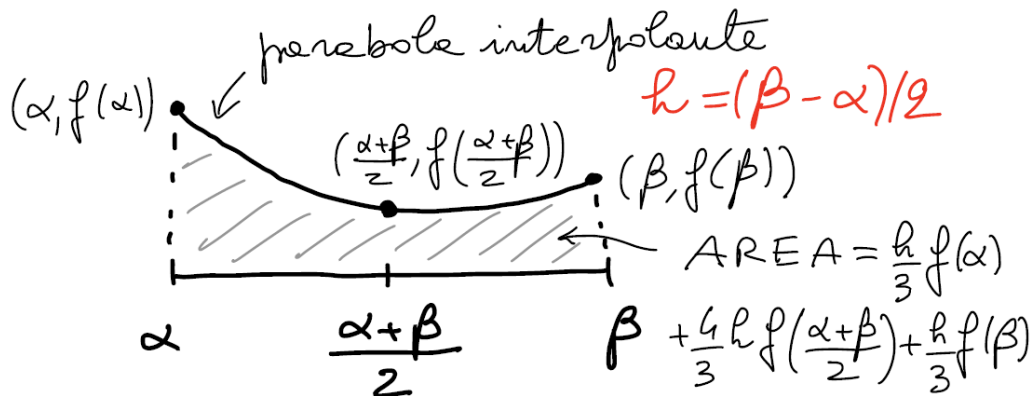 parabola interpolante
h = (β - α)/2
(α, f(α))
(α+β/2, f(α+β/2))
(β, f(β))
AREA = h/3 f(α)
+ 4/3 h f(α+β/2) + h/3 f(β)
α
α + β/2
β